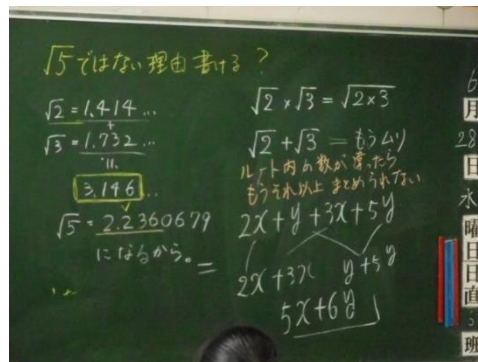 √5ではない理由書ける？
√2=1.414...
+
√3=1.732...
3.146...
√5=2.2360679
になるから。
√2×√3=√2×3
√2+√3=もうムリ
ルート内の数が違ったら
もうそれ以上まとめられない
2x+y+3x+5y
=
2x+3x y+5y
5x+6y
6
月
28
日
水
曜
日
日
直
班